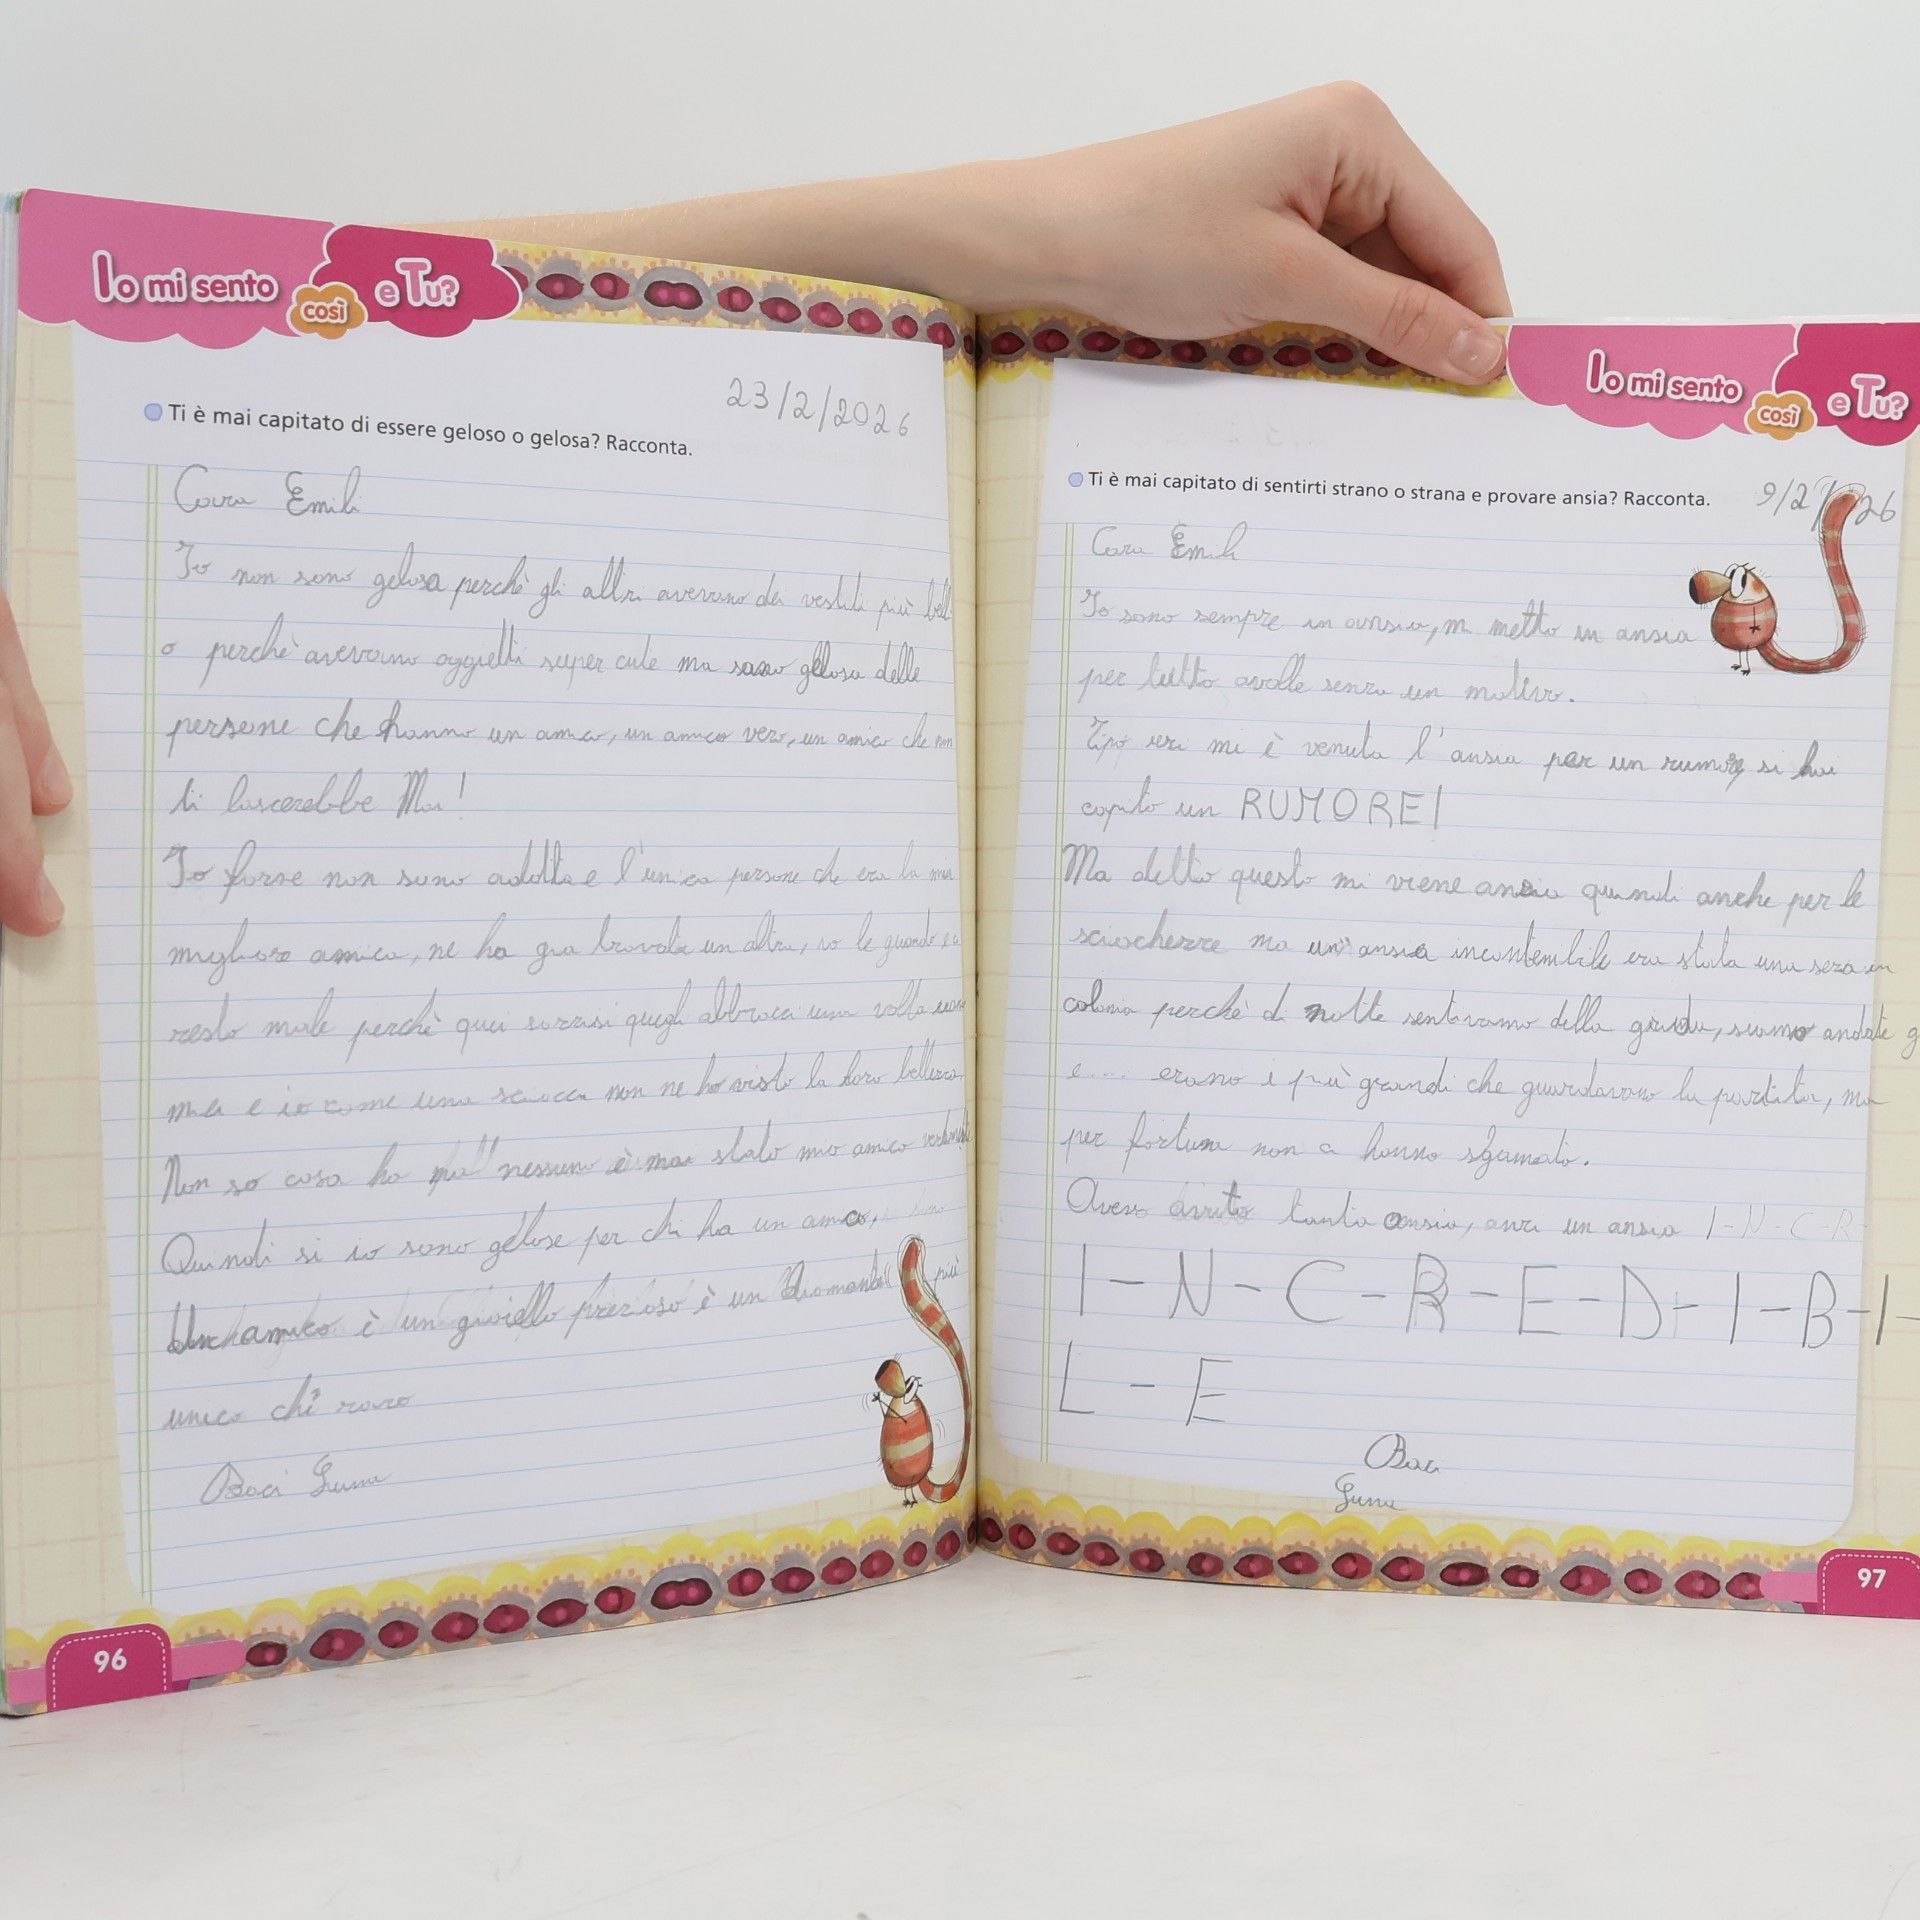 Io mi sento così e Tu?
23/2/2026
Ti è mai capitato di essere geloso o gelosa? Racconta.
Cara Emili
Io non sono gelosa perchè gli altri avevano dei vestiti più bell
o perchè avevano oggietti super cute ma sono gelosa delle
persone che hanno un amico, un amico vero, un amico che non
ti lascerebbe Mai!
Io forse non sono adatta e l'unica persona che era la mia
migliore amica, ne ha già trovata un altra, io le guardo e ci
resto male perchè quei sorrisi quegli abbracci una volta erano
miei e io come una sciocca non ne ho visto la loro bellezza.
Non so cosa ho ma nessuno è mai stato mio amico veramente
Quindi si io sono gelose per chi ha un amico,
Un amico è un gioiello prezioso è un diamante più
unico chi raro
Baci Luna
96
Io mi sento così e Tu?
Ti è mai capitato di sentirti strano o strana e provare ansia? Racconta.
9/2/26
Cara Emili
Io sono sempre in ansia, mi metto in ansia
per tutto avolte senza un motivo.
Tipo ieri mi è venuta l'ansia per un rumore si hai
capito un RUMORE!
Ma detto questo mi viene ansia quindi anche per le
sciocherre ma un'ansia incontenibile era stata una sera in
colonia perchè di notte sentivamo della grida, siamo andate g
e.... erano i più grandi che guardavano la partita, ma
per fortuna non ci hanno sgamato.
Avevo avuto tanta ansia, anzi un ansia I-N-C-R-
I-N-C-R-E-D-I-B-I-
L-E
Baci
Luna
97